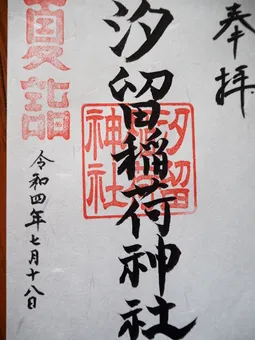 奉拝
汐留稲荷神社
汐留稲荷神社
夏詣
令和四年七月十八日